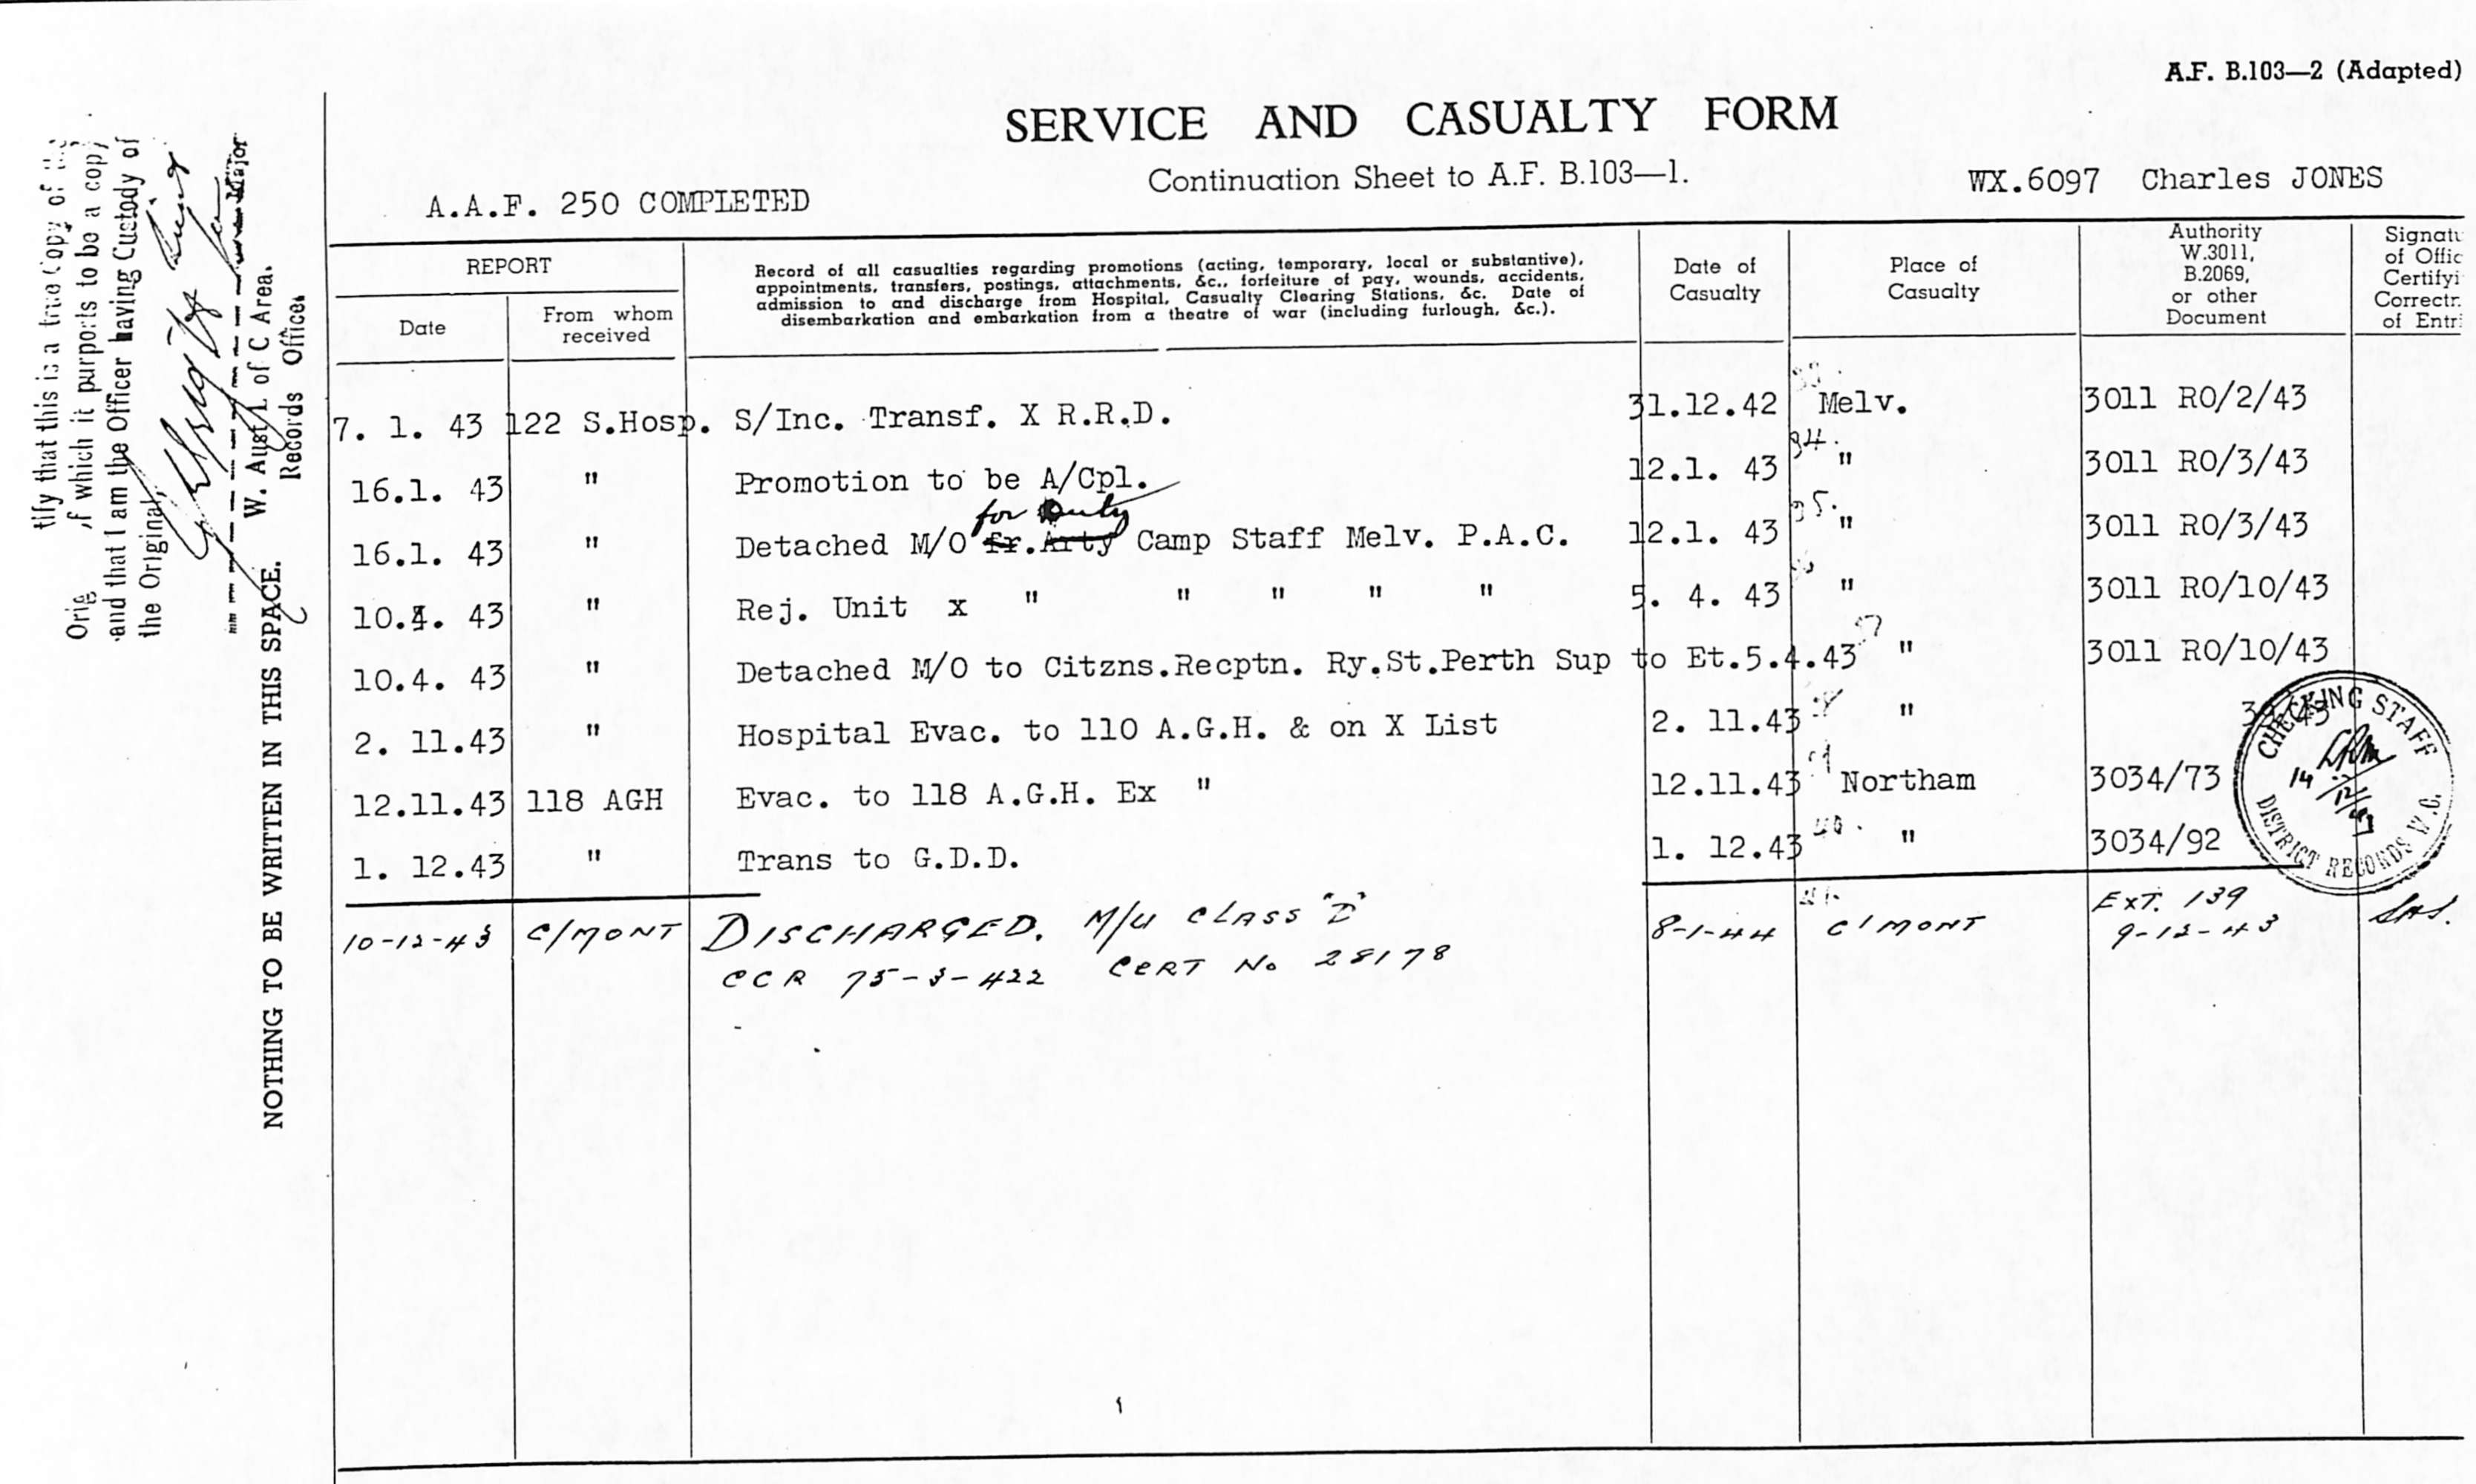 A.F. B.103—2 (Adapted)
SERVICE AND CASUALTY FORM
Continuation Sheet to A.F. B.103—1.
A.A.F. 250 COMPLETED
WX.6097 Charles JONES
tify that this is a true Copy of the
Orig of which it purports to be a copy
and that I am the Officer having Custody of
the Original.
Major
W. Aust L of C Area.
Records Office.
NOTHING TO BE WRITTEN IN THIS SPACE.
REPORT
Date
From whom received
Record of all casualties regarding promotions (acting, temporary, local or substantive),
appointments, transfers, postings, attachments, &c., forfeiture of pay, wounds, accidents,
admission to and discharge from Hospital, Casualty Clearing Stations, &c. Date of
disembarkation and embarkation from a theatre of war (including furlough, &c.).
Date of Casualty
Place of Casualty
Authority W.3011, B.2069, or other Document
Signatu of Offic Certifyi Correctn of Entri
7. 1. 43 122 S.Hosp. S/Inc. Transf. X R.R.D. 31.12.42 Melv. 3011 RO/2/43
16.1. 43 " Promotion to be A/Cpl. 12.1. 43 34. " 3011 RO/3/43
for Duty
16.1. 43 " Detached M/O fr.Arty Camp Staff Melv. P.A.C. 12.1. 43 35. " 3011 RO/3/43
10.4. 43 " Rej. Unit x " " " " " 5. 4. 43 " 3011 RO/10/43
10.4. 43 " Detached M/O to Citzns.Recptn. Ry.St.Perth Sup to Et.5.4.43 " 3011 RO/10/43
2. 11.43 " Hospital Evac. to 110 A.G.H. & on X List 2. 11.43 "
12.11.43 118 AGH Evac. to 118 A.G.H. Ex " 12.11.43 Northam 3034/73
1. 12.43 " Trans to G.D.D. 1. 12.43 40. " 3034/92
CHECKING STAFF
14/12/43
DISTRICT RECORDS W.C.
10-12-43 C/MONT DISCHARGED. M/U CLASS "D" 8-1-44 C/MONT EXT. 139
CCR 75-3-422 CERT No 28178 9-12-43